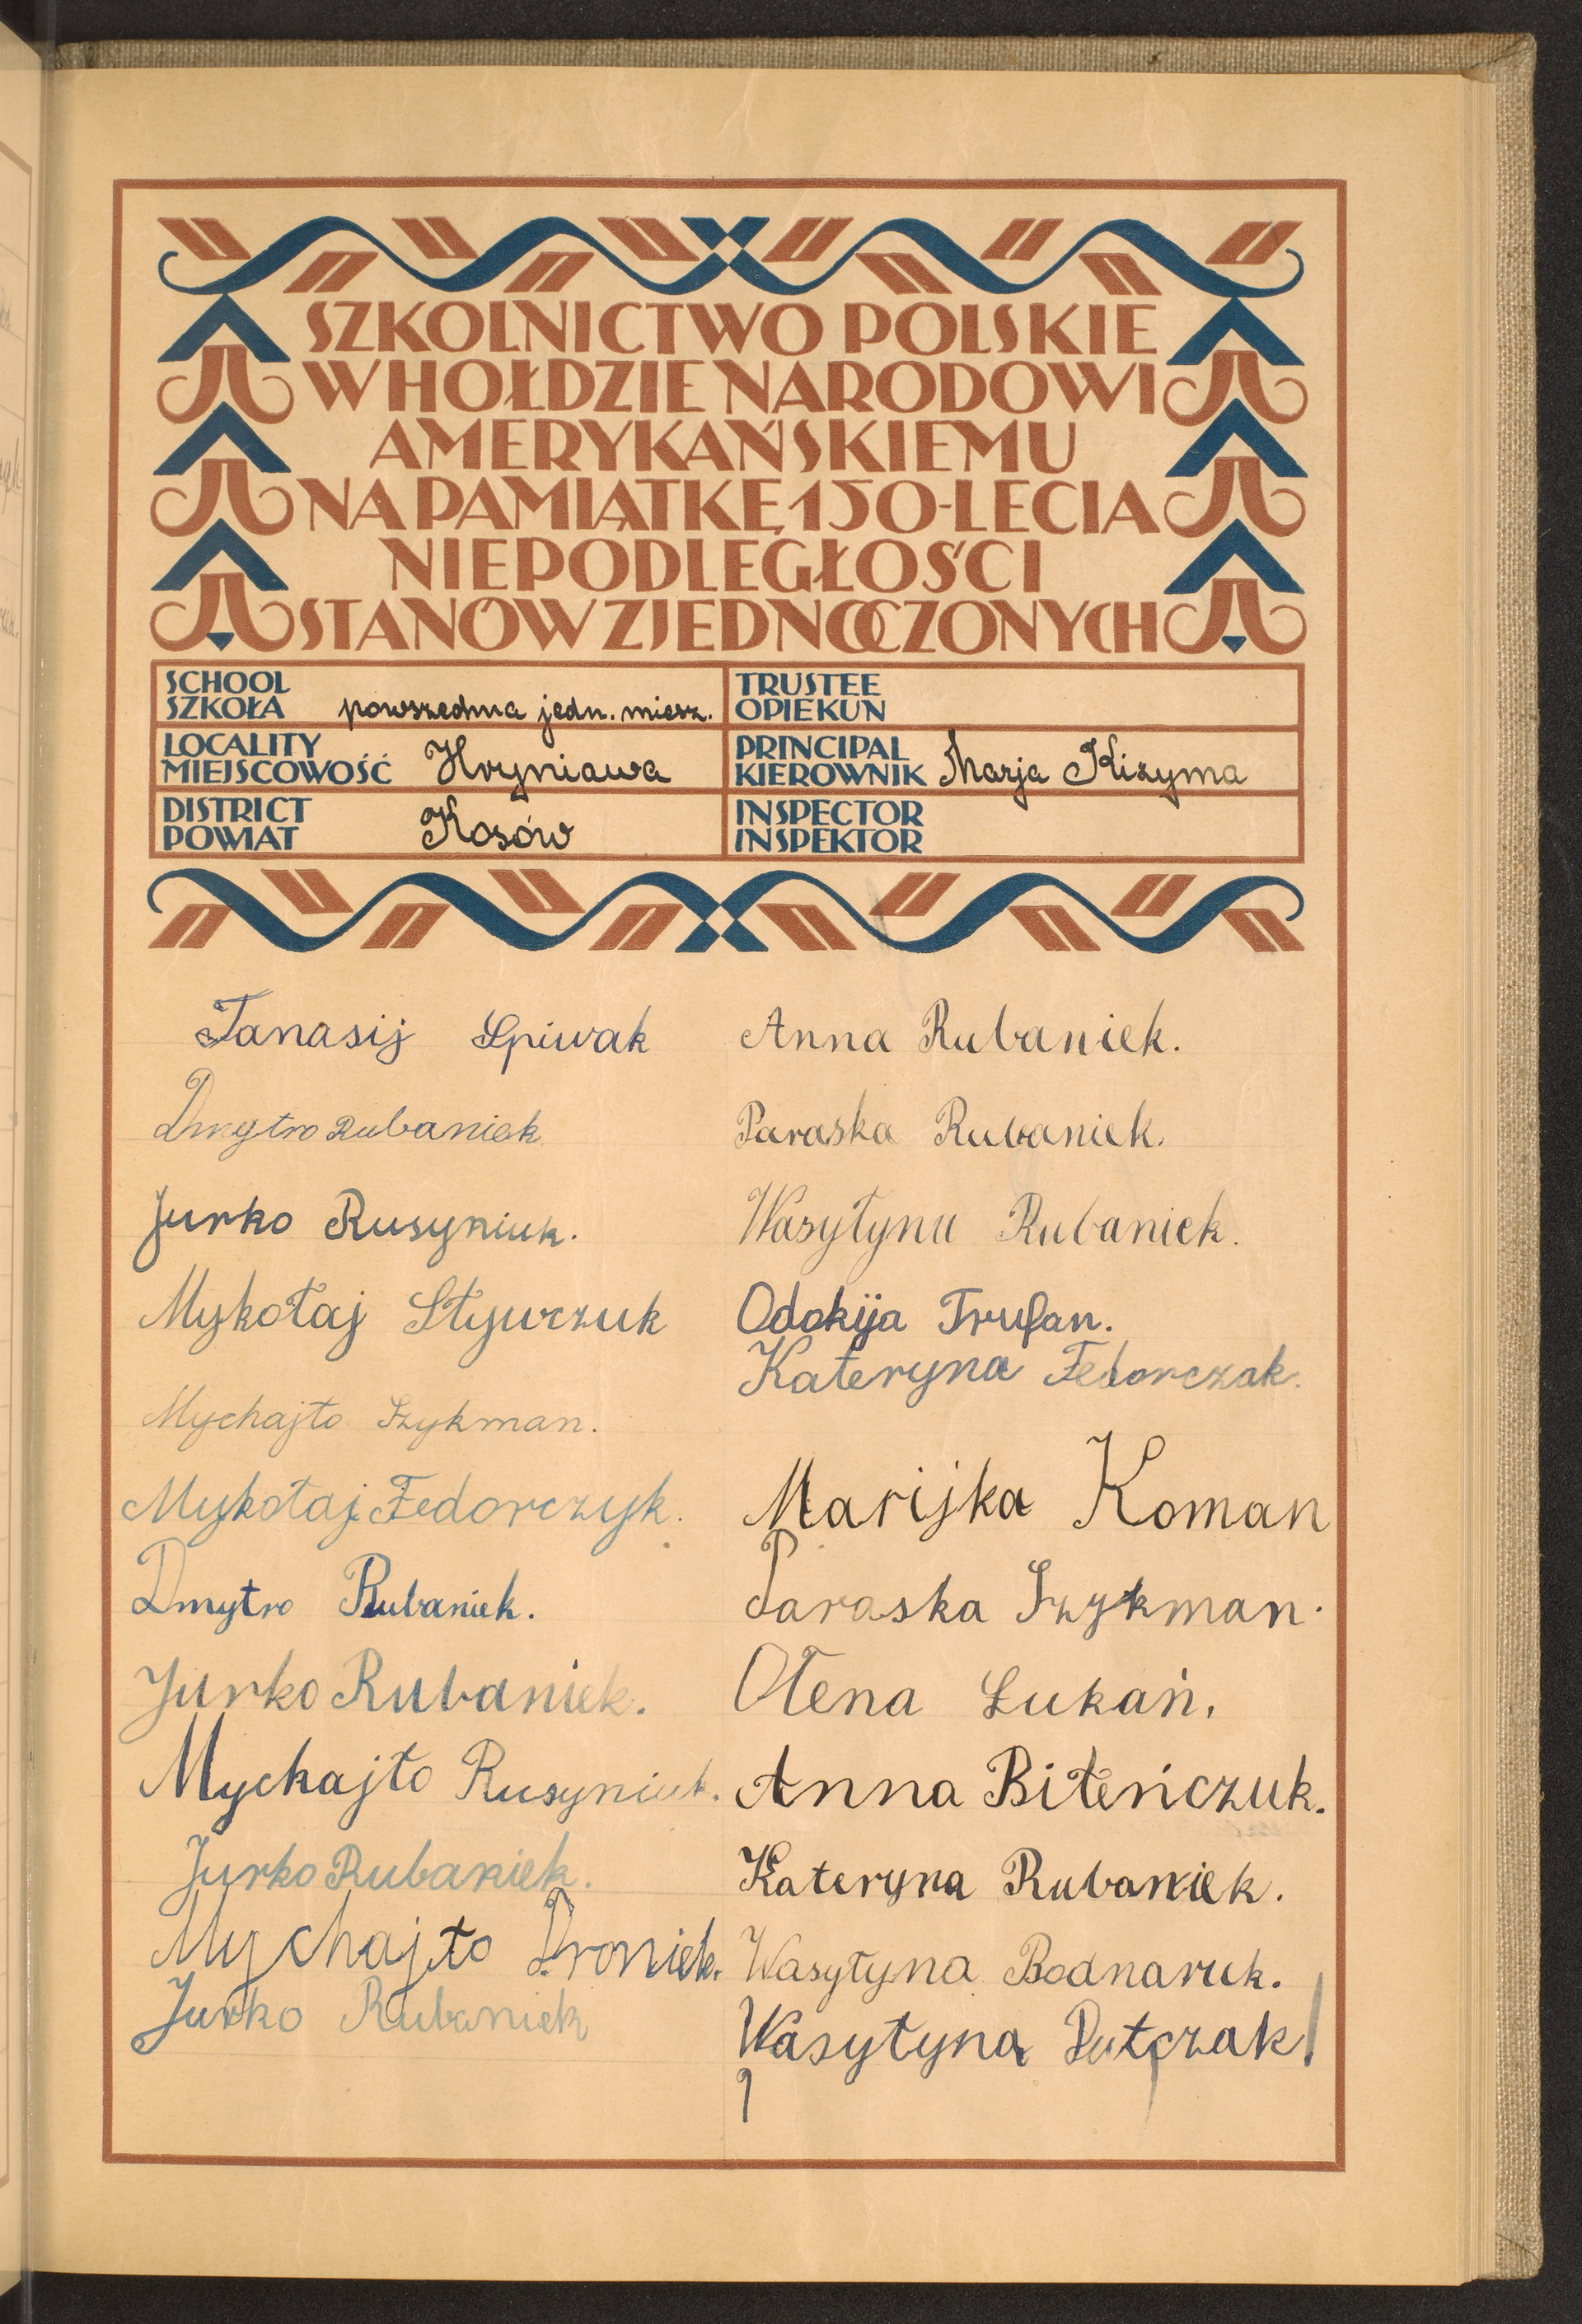 SZKOLNICTWO POLSKIE
W HOŁDZIE NARODOWI
AMERYKAŃSKIEMU
NA PAMIĄTKĘ 150-LECIA
NIEPODLEGŁOŚCI
STANÓW ZJEDNOCZONYCH
SCHOOL
SZKOŁA powszechna jedn. miesz.
TRUSTEE
OPIEKUN
LOCALITY
MIEJSCOWOŚĆ Hryniawa
PRINCIPAL
KIEROWNIK Marja Kizyma
DISTRICT
POWIAT Kosów
INSPECTOR
INSPEKTOR
Tanasij Spiwak
Dmytro Rubaniek
Jurko Rusyniuk.
Mykołaj Stywczuk
Mychajło Szykman.
Mykołaj Fedorczyk.
Dmytro Rubaniek.
Jurko Rubaniek.
Mychajło Rusyniuk.
Jurko Rubaniek.
Mychajło Droniek.
Jurko Rubaniek
Anna Rubaniek.
Paraska Rubaniek.
Wasyłyna Rubaniek.
Odokija Trufan.
Kateryna Fedorczak.
Marijka Koman
Paraska Szykman.
Ołena Łukań.
Anna Biłeńczuk.
Kateryna Rubaniek.
Wasyłyna Bodnaruk.
Wasyłyna Dutczak